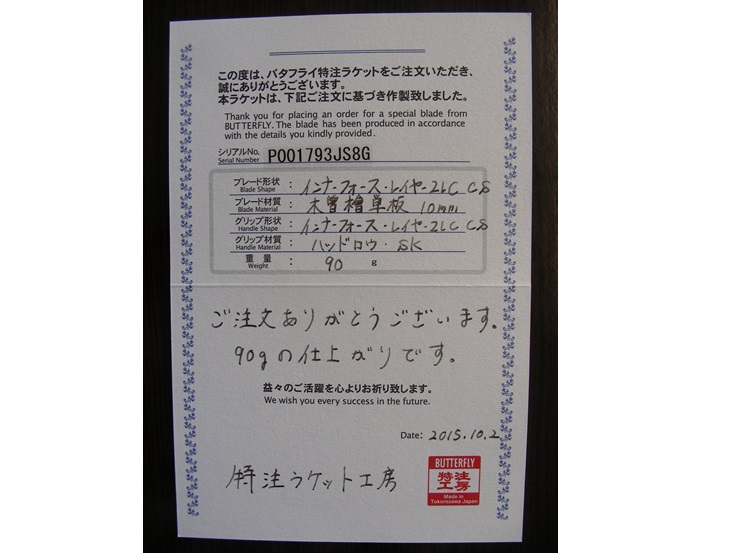 この度は、バタフライ特注ラケットをご注文いただき、
誠にありがとうございます。
本ラケットは、下記ご注文に基づき作製致しました。
Thank you for placing an order for a special blade from
BUTTERFLY. The blade has been produced in accordance
with the details you kindly provided.
シリアルNo.
Serial Number P001793JS8G
ブレード形状 : インナーフォース・レイヤーZLC CS
Blade Shape
ブレード材質 : 木曽檜単板 10mm
Blade Material
グリップ形状 : インナーフォース・レイヤーZLC CS
Handle Shape
グリップ材質 : ハッドロウ・SK
Handle Material
重量 : 90 g
Weight
ご注文ありがとうございます。
90gの仕上がりです。
益々のご活躍を心よりお祈り致します。
We wish you every success in the future.
Date: 2015.10.2
特注ラケット工房
BUTTERFLY
特注
工房
Made in
Tokorozawa Japan